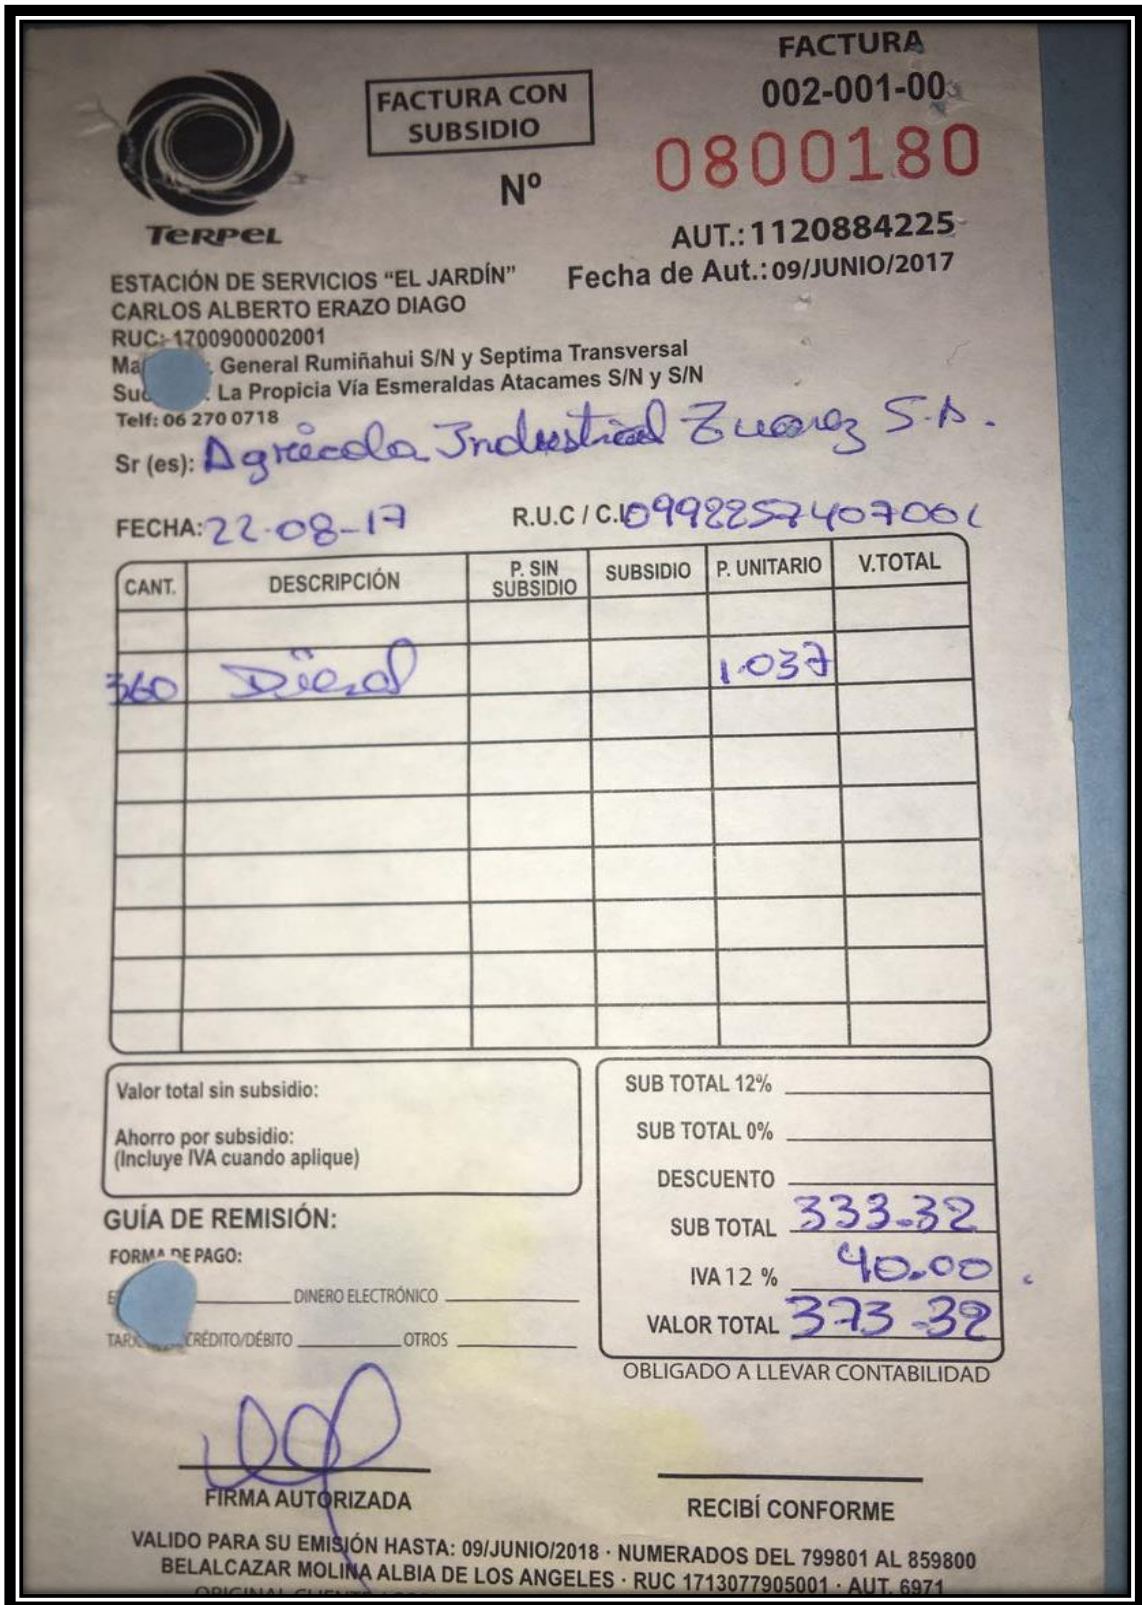 FACTURA
002-001-00
FACTURA CON
SUBSIDIO
Nº
0800180
TERPEL
AUT.: 1120884225
Fecha de Aut.: 09/JUNIO/2017
ESTACIÓN DE SERVICIOS "EL JARDÍN"
CARLOS ALBERTO ERAZO DIAGO
RUC: 1700900002001
General Rumiñahui S/N y Septima Transversal
La Propicia Vía Esmeraldas Atacames S/N y S/N
Telf: 06 270 0718
Sr (es): Agrícola Industrial S.A.
FECHA: 22-08-17 R.U.C / C.I. 0992257407001
CANT. DESCRIPCIÓN P. SIN SUBSIDIO SUBSIDIO P. UNITARIO V.TOTAL
360 Diesel 1.037
Valor total sin subsidio:
Ahorro por subsidio:
(Incluye IVA cuando aplique)
SUB TOTAL 12%
SUB TOTAL 0%
DESCUENTO
SUB TOTAL 333.32
IVA 12 % 40.00
VALOR TOTAL 373.32
OBLIGADO A LLEVAR CONTABILIDAD
GUÍA DE REMISIÓN:
FORMA DE PAGO:
DINERO ELECTRÓNICO
CRÉDITO/DÉBITO OTROS
FIRMA AUTORIZADA
RECIBÍ CONFORME
VALIDO PARA SU EMISIÓN HASTA: 09/JUNIO/2018 · NUMERADOS DEL 799801 AL 859800
BELALCAZAR MOLINA ALBIA DE LOS ANGELES · RUC 1713077905001 · AUT. 6971